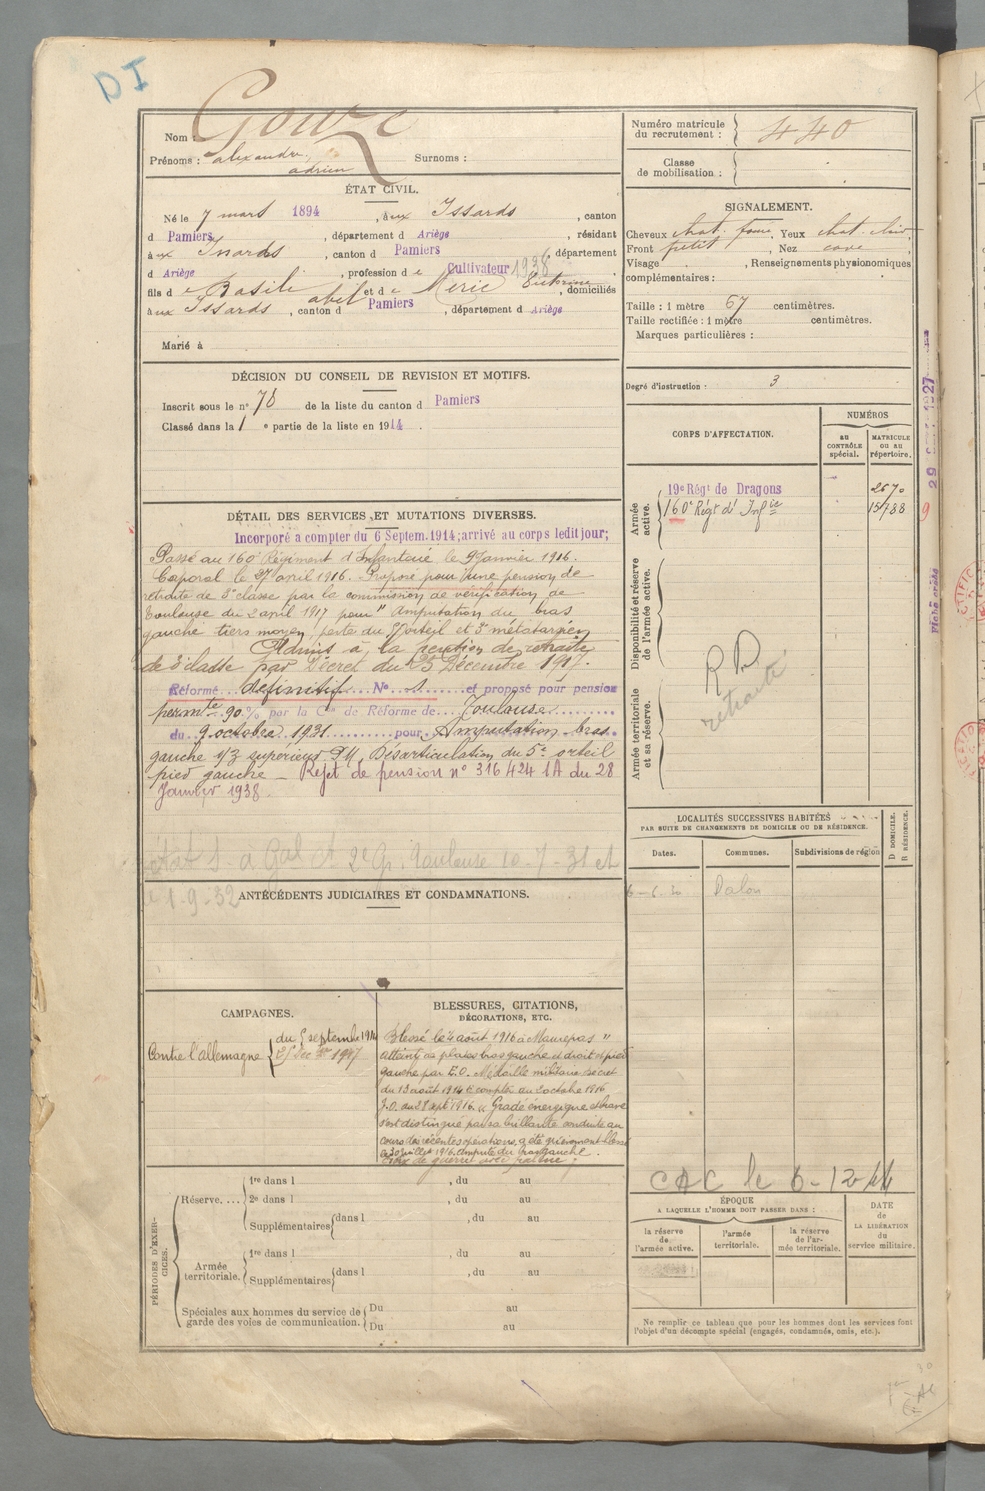 DI
Nom : Gouze
Prénoms : alexandre
adrien
Surnoms :
ÉTAT CIVIL.
Né le 7 mars 1894, à ux Issards, canton
d Pamiers, département d Ariège, résidant
à ux Issards, canton d Pamiers, département
d Ariège, profession d e Cultivateur 1938
fils d e Basile abel et d e Meric, domiciliés
à ux Issards, canton d Pamiers, département d Ariège
Marié à
DÉCISION DU CONSEIL DE REVISION ET MOTIFS.
Inscrit sous le n° 78 de la liste du canton d Pamiers
Classé dans la 1 e partie de la liste en 1914.
DÉTAIL DES SERVICES ET MUTATIONS DIVERSES.
Incorporé a compter du 6 Septem. 1914; arrivé au corps ledit jour;
Passé au 160e Régiment d'Infanterie le 9 Janvier 1916.
Caporal le 27 april 1916. Proposé pour une pension de
retraite de 3e classe par la commission de vérification de
Toulouse du 2 april 1917 pour "Amputation du bras
gauche tiers moyen, perte du 5e orteil et 5e métatarsien
Admis à la pension de retraite
de 3e classe par Décret du 25 Décembre 1917.
Réformé définitif N° 1 et proposé pour pension
permte 90 % par la Con de Réforme de Toulouse
du 9 octobre 1931 pour Amputation bras
gauche 1/3 supérieur. Désarticulation du 5e orteil
pied gauche - Rejet de pension n° 316424 1A du 28
Janvier 1938.
Etat S. a Gal A 2e Gr. Toulouse 10-7-31 et
1-9-32
ANTÉCÉDENTS JUDICIAIRES ET CONDAMNATIONS.
CAMPAGNES.
Contre l'allemagne { du 5 septembre 1914
25 Dec bre 1917
BLESSURES, CITATIONS,
DÉCORATIONS, ETC.
Blessé le 4 août 1916 à Maurepas "
atteint de plaies bras gauche et droit et pied
gauche par E.O. Médaille militaire décret
du 13 août 1914 à compter du 2 octobre 1916
J.O. du 28 spt 1916. "Gradé énergique et brave
s'est distingué par sa brillante conduite au
cours des récentes opérations, a été grièvement blessé
le 30 juillet 1916. Amputé du bras gauche.
Croix de guerre avec palme;
PÉRIODES D'EXERCICES.
Réserve....
1re dans l , du au
2e dans l , du au
Supplémentaires { dans l , du au
Armée
territoriale.
1re dans l , du au
Supplémentaires { dans l , du au
Spéciales aux hommes du service de
garde des voies de communication.
Du au
Du au
Numéro matricule
du recrutement : 440
Classe
de mobilisation :
SIGNALEMENT.
Cheveux chat. foncé, Yeux chat. clair,
Front petit, Nez cave
Visage , Renseignements physionomiques
complémentaires :
Taille : 1 mètre 67 centimètres.
Taille rectifiée : 1 mètre centimètres.
Marques particulières :
Degré d'instruction : 3
CORPS D'AFFECTATION.
NUMÉROS
au
CONTRÔLE
spécial.
MATRICULE
ou au
répertoire.
Armée
active.
19e Régt de Dragons 2670
160e Régt d'Infie 15788
Disponibilité et réserve
de l'armée active.
RD
retraité
Armée territoriale
et sa réserve.
LOCALITÉS SUCCESSIVES HABITÉES
PAR SUITE DE CHANGEMENTS DE DOMICILE OU DE RÉSIDENCE.
Dates.
Communes.
Subdivisions de région
D DOMICILE.
R RÉSIDENCE.
6-6-30 Dalou
CAC le 6-12-44
ÉPOQUE
A LAQUELLE L'HOMME DOIT PASSER DANS :
la réserve
de
l'armée active.
l'armée
territoriale.
la réserve
de l'ar-
mée territoriale.
DATE
de
LA LIBÉRATION
du
service militaire.
Ne remplir ce tableau que pour les hommes dont les services font
l'objet d'un décompte spécial (engagés, condamnés, omis, etc.).
Fiche créée
1927
9